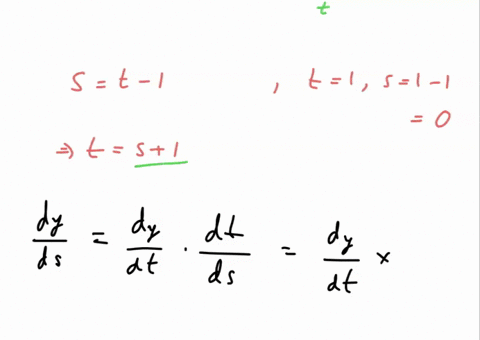 t
s = t - 1 , t = 1, s = 1 - 1
= 0
⇒ t = s + 1
dy/ds = dy/dt · dt/ds = dy/dt ×